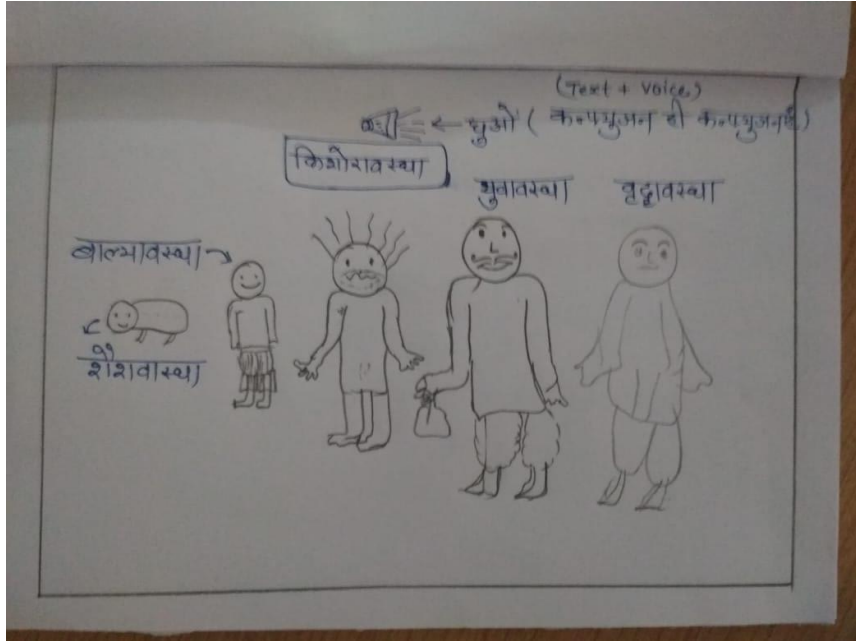 (Text + Voice)
← धुआँ ( कन्फ्युजन ही कन्फ्युजन है )
किशोरावस्था
युवावस्था
वृद्धावस्था
बाल्यावस्था
शैशवास्था